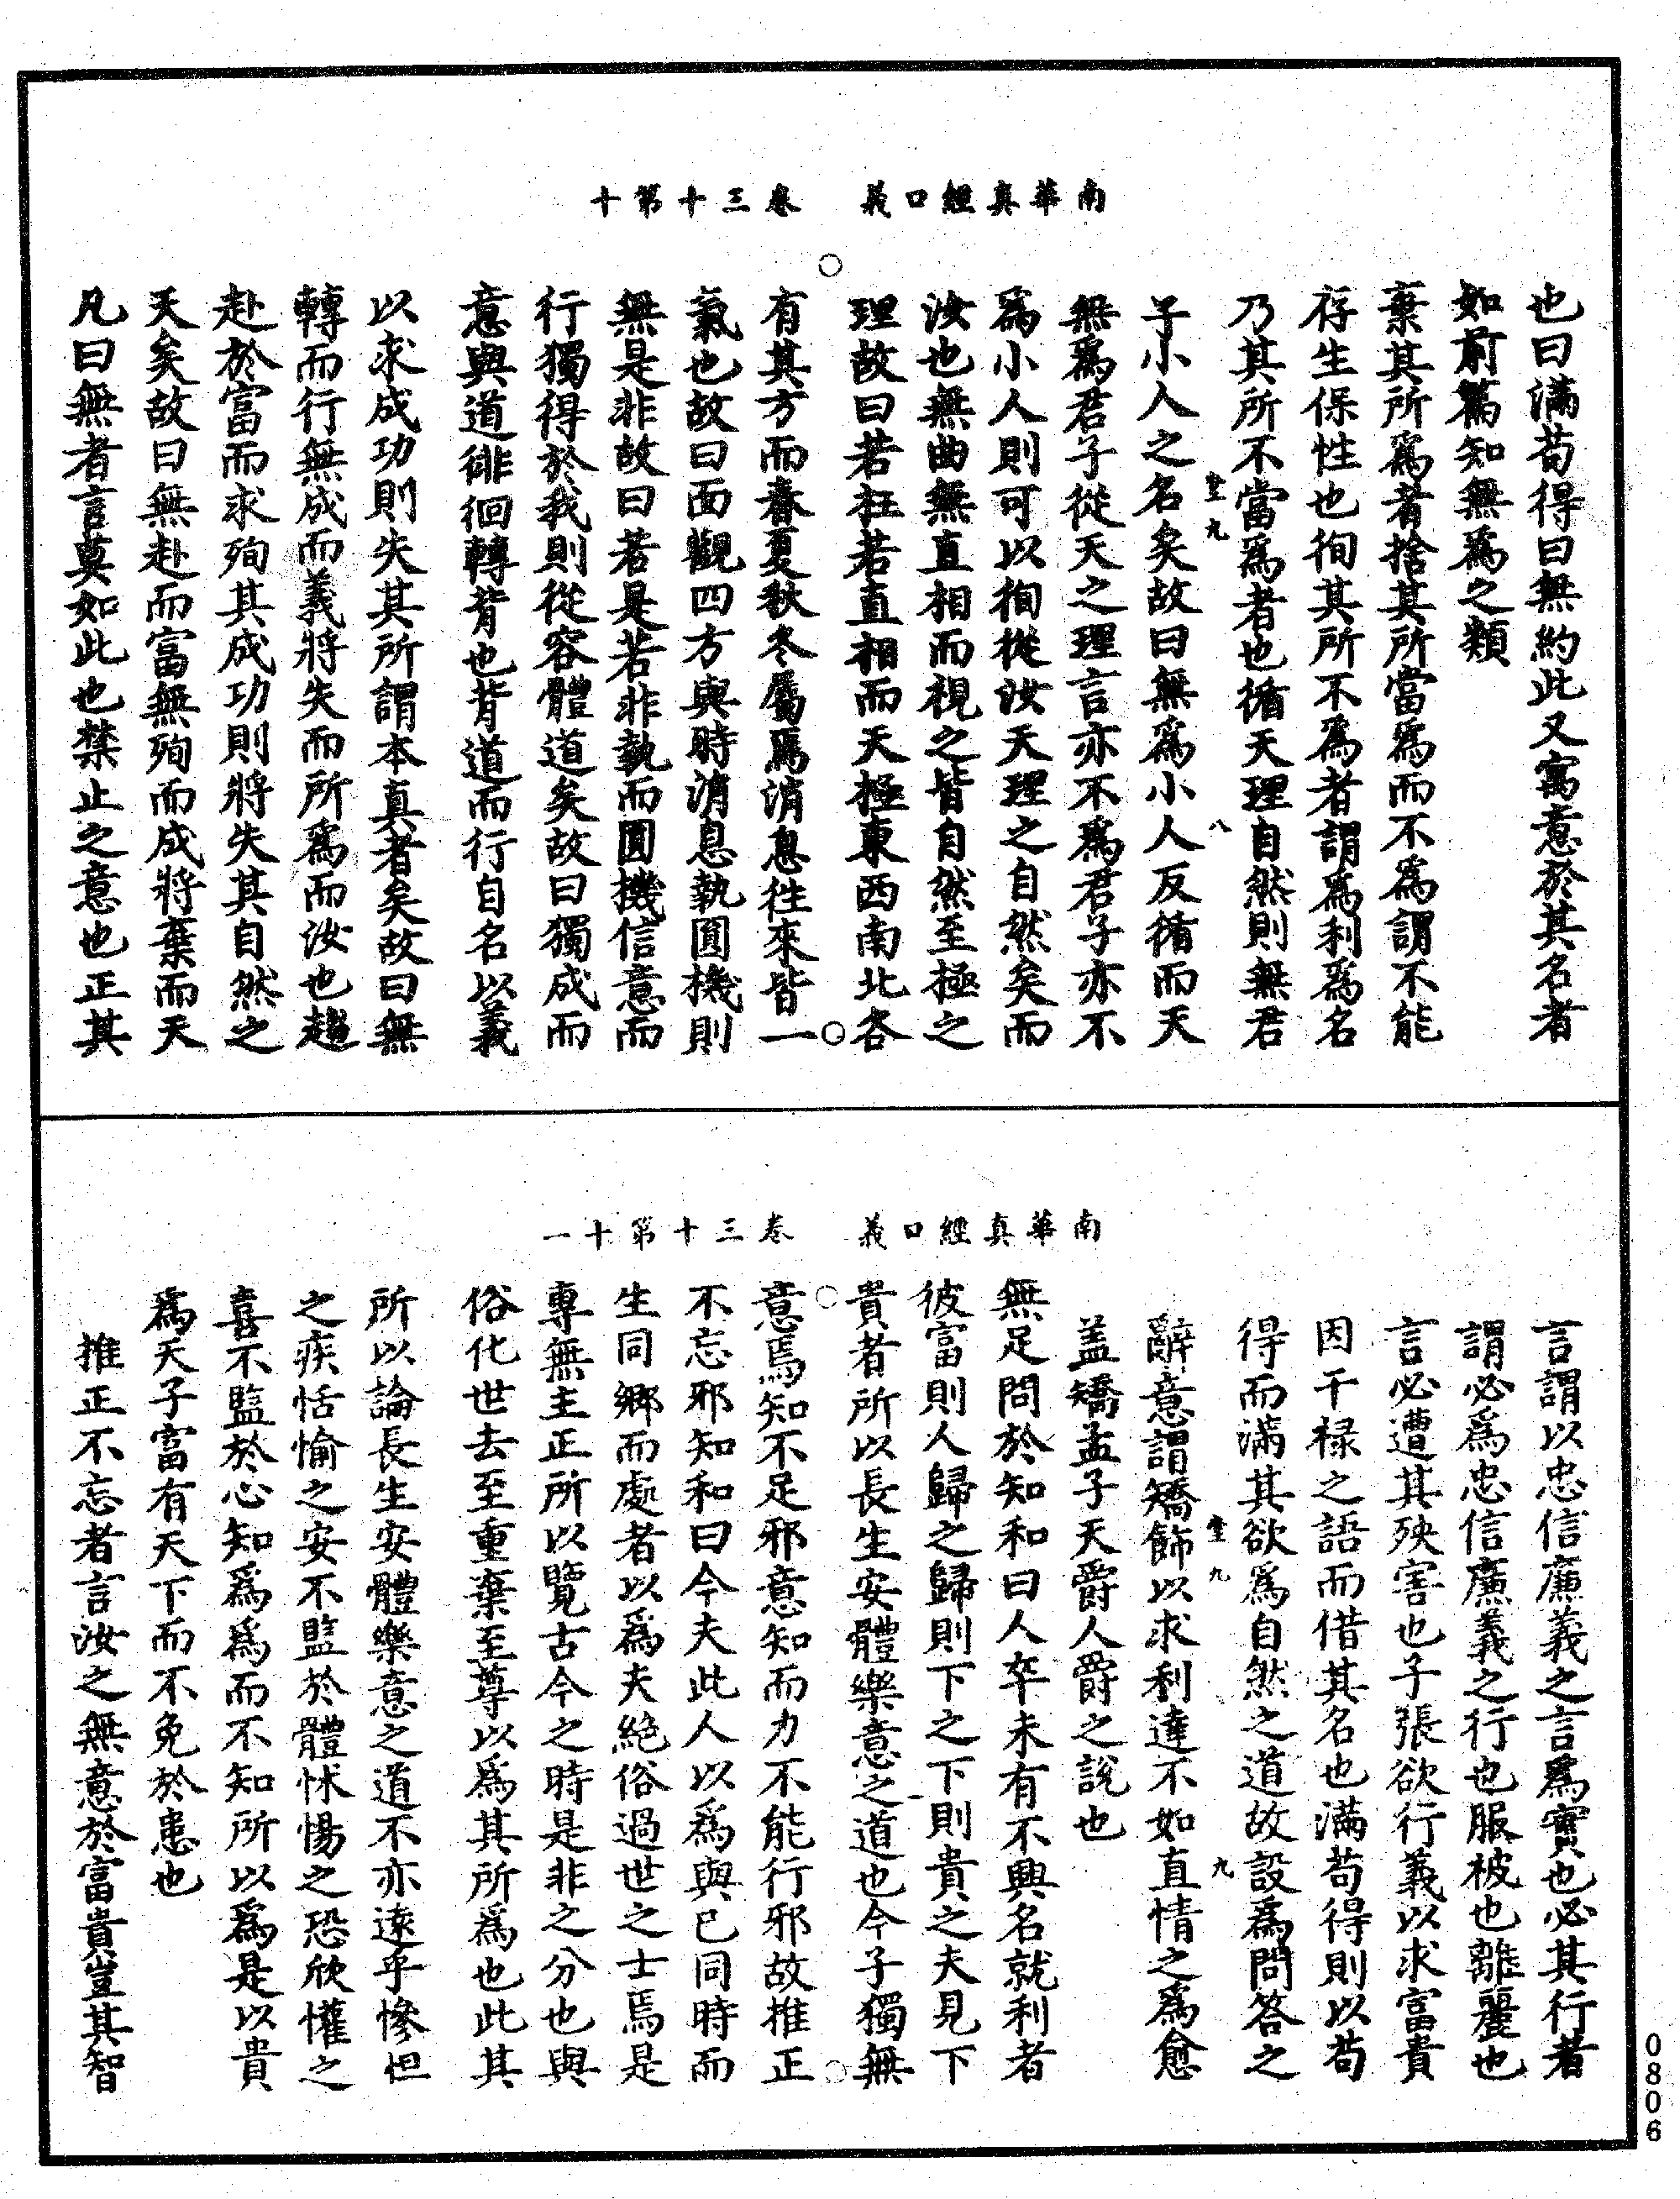 南華真經口義　卷三十第十
也曰滿苟得曰無約此又寓意於其名者
如前篇知無爲之類
棄其所爲者捨其所當爲而不爲謂不能
存生保性也徇其所不爲者謂爲利爲名
乃其所不當爲者也循天理自然則無君
子小人之名矣故曰無爲小人反循而天
無爲君子從天之理言亦不爲君子亦不
爲小人則可以徇從汝天理之自然矣而
汝也無曲無直相而視之皆自然至極之
理故曰若枉若直相而天極東西南北各
有其方而春夏秋冬屬焉消息往來皆一
氣也故曰面觀四方與時消息執圓機則
無是非故曰若是若非執而圓機信意而
行獨得於我則從容體道矣故曰獨成而
意與道徘徊轉背也背道而行自名以義
以求成功則失其所謂本真者矣故曰無
轉而行無成而義將失而所爲而汝也趨
赴於富而求殉其成功則將失其自然之
天矣故曰無赴而富無殉而成將棄而天
凡曰無者言莫如此也禁止之意也正其
南華真經口義　卷三十第十一
言謂以忠信廉義之言爲實也必其行者
謂必爲忠信廉義之行也服被也離麗也
言必遭其殃害也子張欲行義以求富貴
因干祿之語而借其名也滿苟得則以苟
得而滿其欲爲自然之道故設爲問答之
辭意謂矯飾以求利達不如直情之爲愈
蓋矯孟子天爵人爵之說也
無足問於知和曰人卒未有不興名就利者
彼富則人歸之歸則下之下則貴之夫見下
貴者所以長生安體樂意之道也今子獨無
意焉知不足邪意知而力不能行邪故推正
不忘邪知和曰今夫此人以爲與己同時而
生同鄉而處者以爲夫絕俗過世之士焉是
專無主正所以覽古今之時是非之分也與
俗化世去至重棄至尊以爲其所爲也此其
所以論長生安體樂意之道不亦遠乎慘怛
之疾恬愉之安不監於體怵惕之恐欣懽之
喜不監於心知爲爲而不知所以爲是以貴
爲天子富有天下而不免於患也
推正不忘者言汝之無意於富貴豈其智
0806